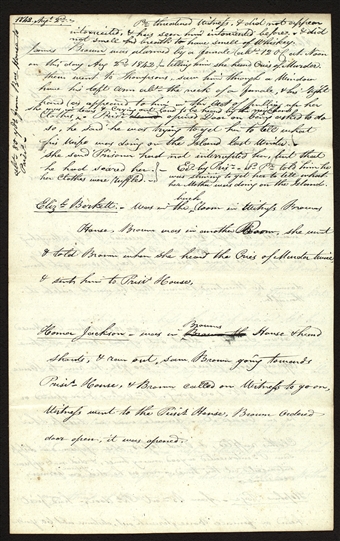 1842. Augt 3d.
Pr. threatened Witness, & did not appear
intoxicated, & has seen him intoxicated before, & did
not smell his breath to have smell of Whiskey.
James Brown was alarmed by a female abt. 12 O'clk Noon
on this day Augt 3d 1842 / telling him she heard Cries of Murder
then went to Thompsons, saw him through a Window
have his left Arm abt. the neck of a female, & his right
hand (as appeared to him) in the act of pulling up her
Clothes,
she was in tears & Crying out loud to be heard by the neighbors /
Prisr. opened Door on being asked to do
so, he said he was trying to get her to tell what
his Wife was doing on the Island last Winter.
she said Prisoner had not interrupted her, but that
he had scared her.
her Clothes were ruffled.
Ed. by Pris. — Pr. tells him he
was striving to get her to tell what
her Mother was doing on the Island.
Abt. 20 yds from Bns House to
Pris's.
Elizth. Borkett. — Was in the back Room in Witness Browns
House, Brown was in another Room, she went
& told Brown when she heard the Cries of Murder twice
& sent him to Prisrs House,
Homer Jackson — was in Browns House & heard
shouts, & ran out, saw Brown going towards
Prisrs. House, & Brown called on Witness to go on,
Witness went to the Prisrs House, Brown ordered
door open, it was opened.